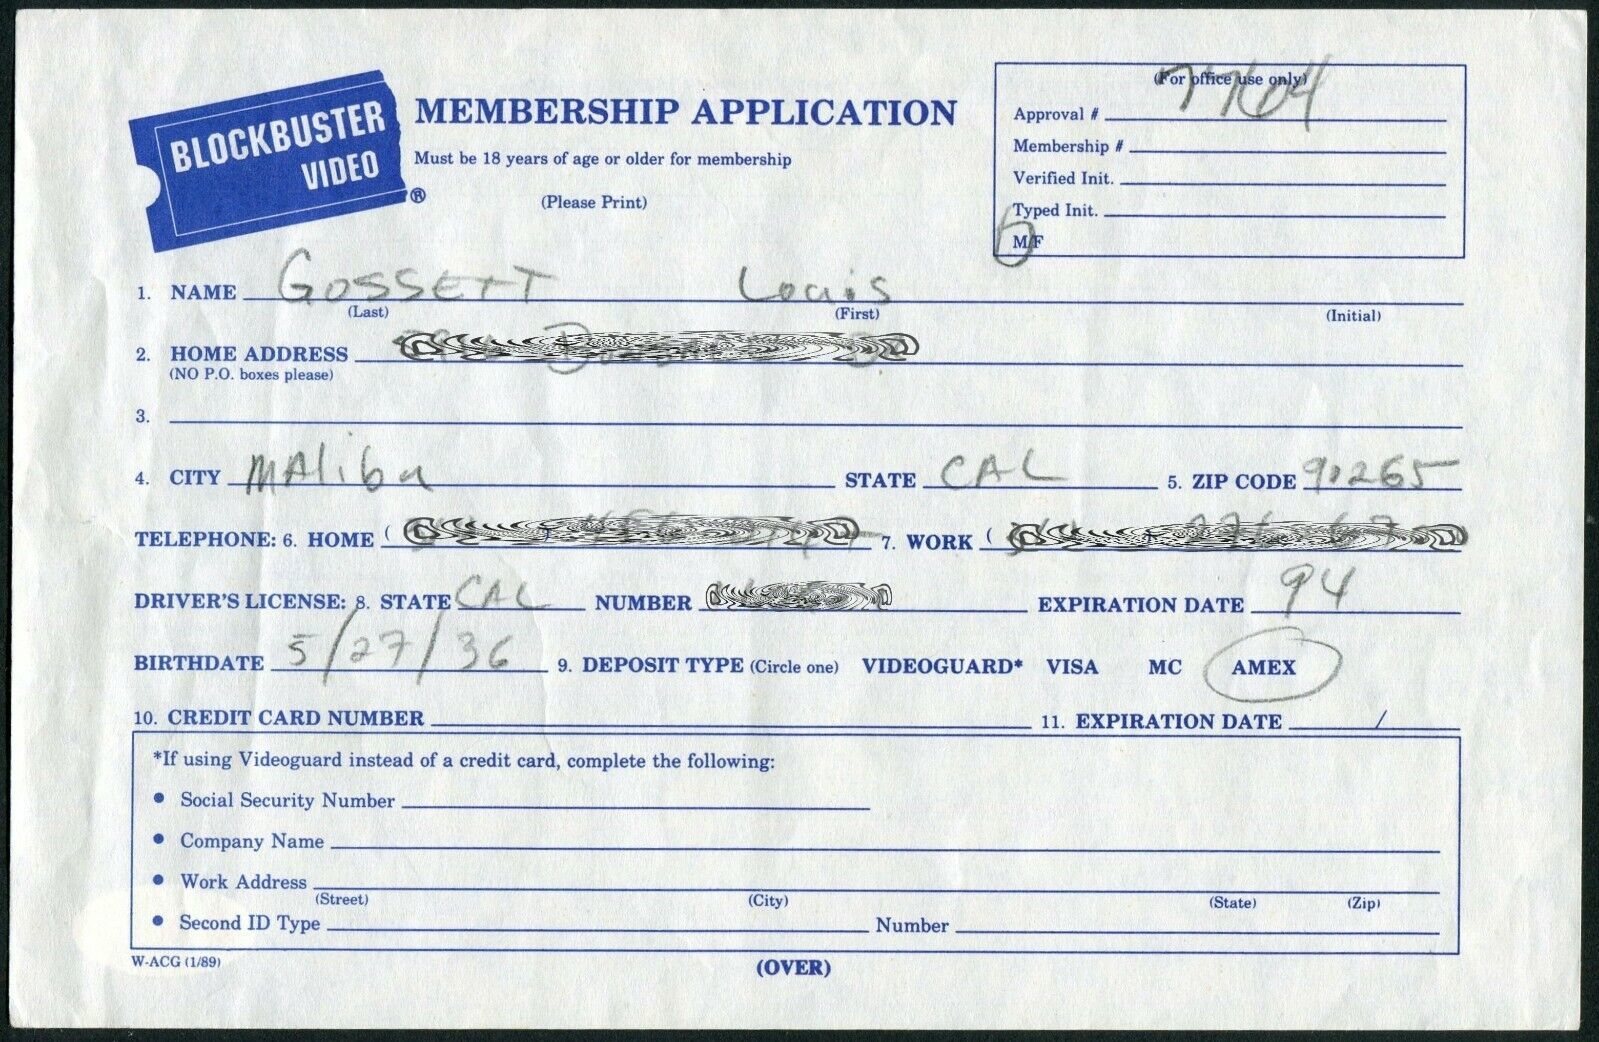 BLOCKBUSTER VIDEO ®
MEMBERSHIP APPLICATION
Must be 18 years of age or older for membership
(Please Print)
(For office use only)
7764
Approval #
Membership #
Verified Init.
Typed Init.
M/F
1. NAME GOSSETT Louis
(Last) (First) (Initial)
2. HOME ADDRESS
(NO P.O. boxes please)
3.
4. CITY MAlibu STATE CAL 5. ZIP CODE 90265
TELEPHONE: 6. HOME ( ) 7. WORK ( )
DRIVER'S LICENSE: 8. STATE CAL NUMBER EXPIRATION DATE 94
BIRTHDATE 5/27/36 9. DEPOSIT TYPE (Circle one) VIDEOGUARD* VISA MC AMEX
10. CREDIT CARD NUMBER 11. EXPIRATION DATE /
*If using Videoguard instead of a credit card, complete the following:
• Social Security Number
• Company Name
• Work Address
(Street) (City) (State) (Zip)
• Second ID Type Number
W-ACG (1/89)
(OVER)